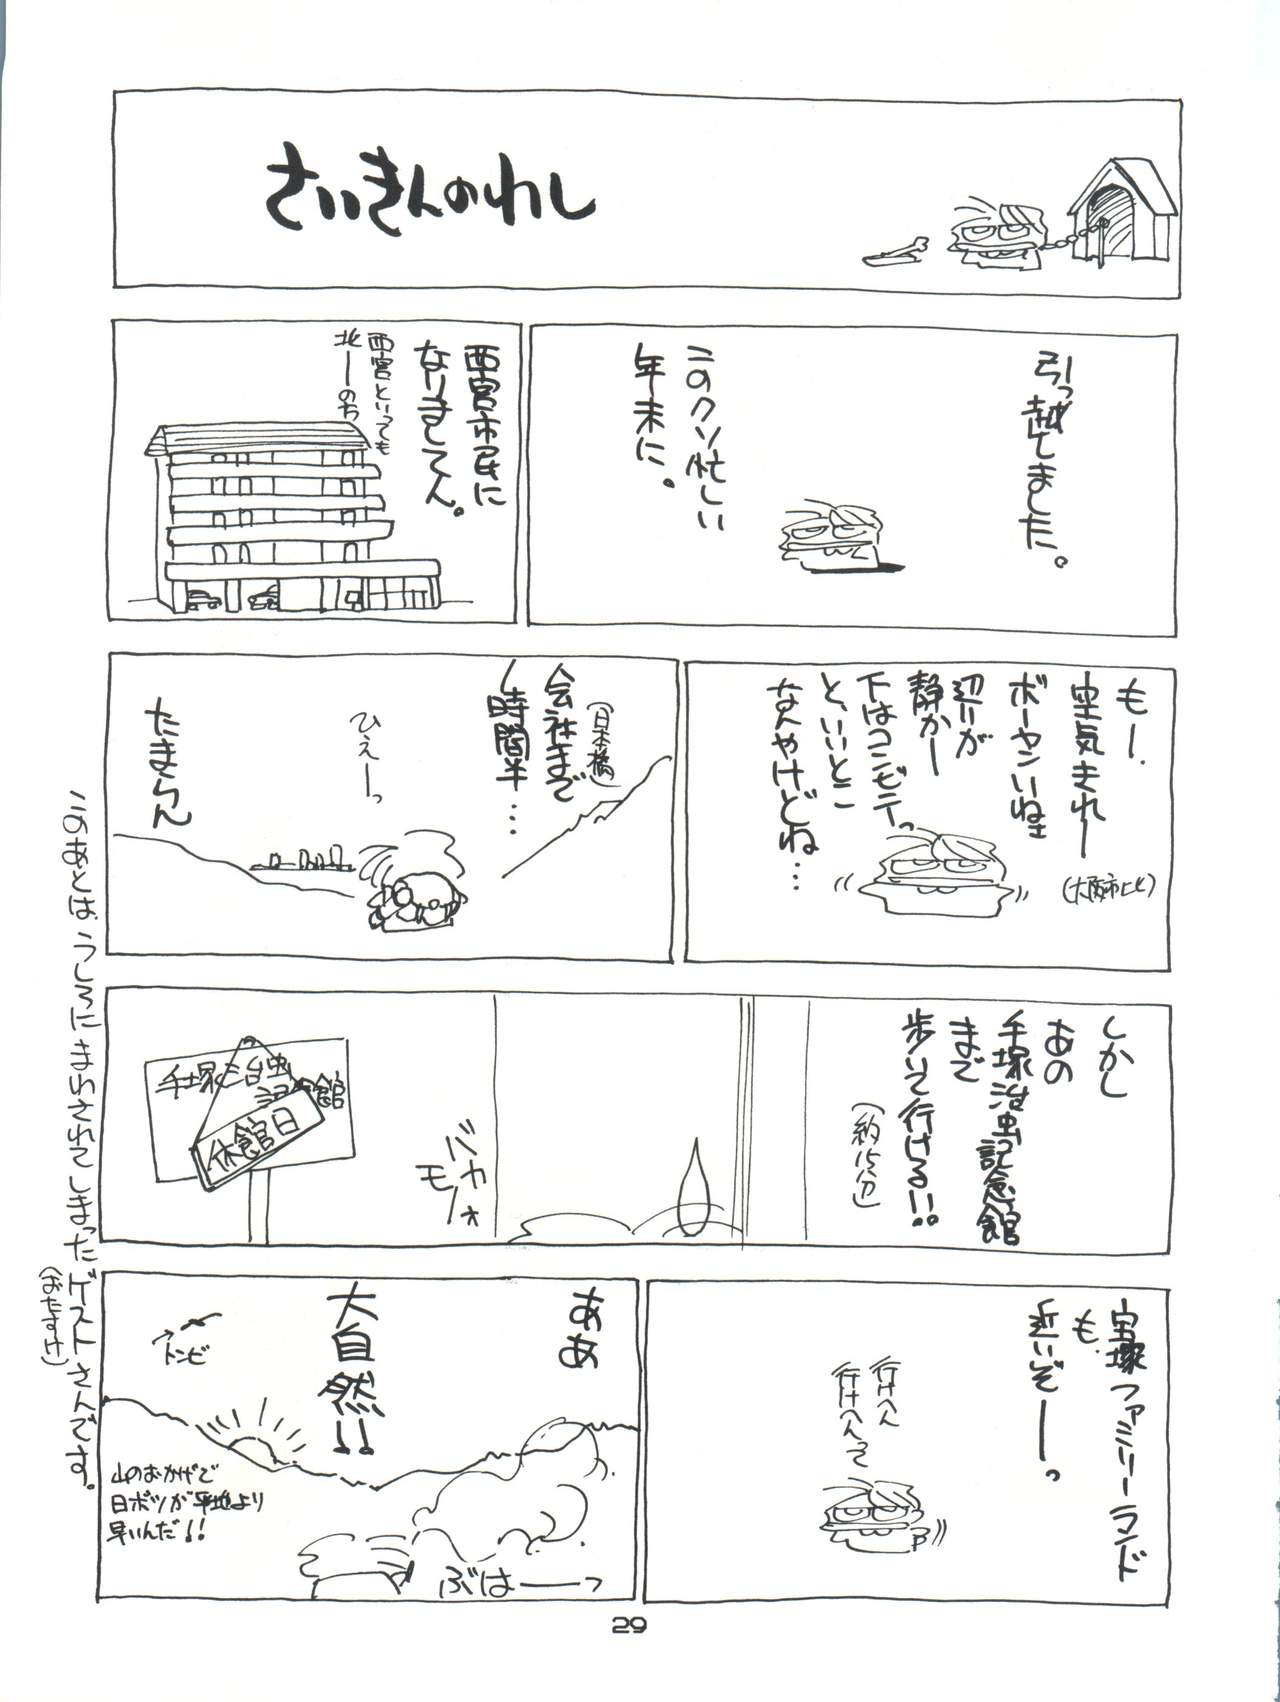 さいきんのわし
引っ越しました。
このクソ忙しい
年末に。
西宮市民に
なりましてん。
西宮といっても
北ーのち
もー、
空気きれー
(大阪市比)
ボーヤンいねェ
辺りが
静かー
下はコンビニでっ
と、いいとこ
なんやけどね…
(日本橋)
会社まで
1時間半…
ひえーっ
たまらん
しかし
あの
手塚治虫記念館
まで
歩いて行ける!!
(約15分)
バカ
モノォ
手塚治虫
記念館
休館日
宝塚ファミリーランド
も、
近いぞーっ
行けへん
行けへんって
ああ
大自然!!
トンビ
山のおかげで
日ボツが平地より
早いんだ!!
ぶはーっ
このあとは、うしろにまわされてしまったゲストさんです。
(おたすけ)
29